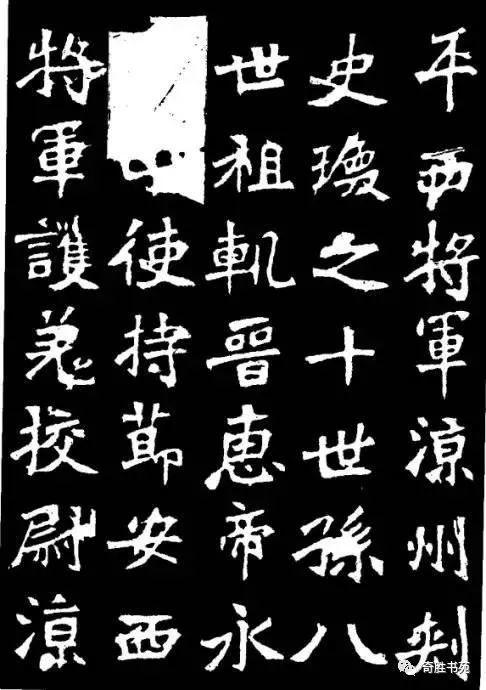 平西將軍涼州刺
史瓊之十世孫八
世祖軌晉惠帝永
使持節安西
將軍護羌校尉涼
奇胜书苑